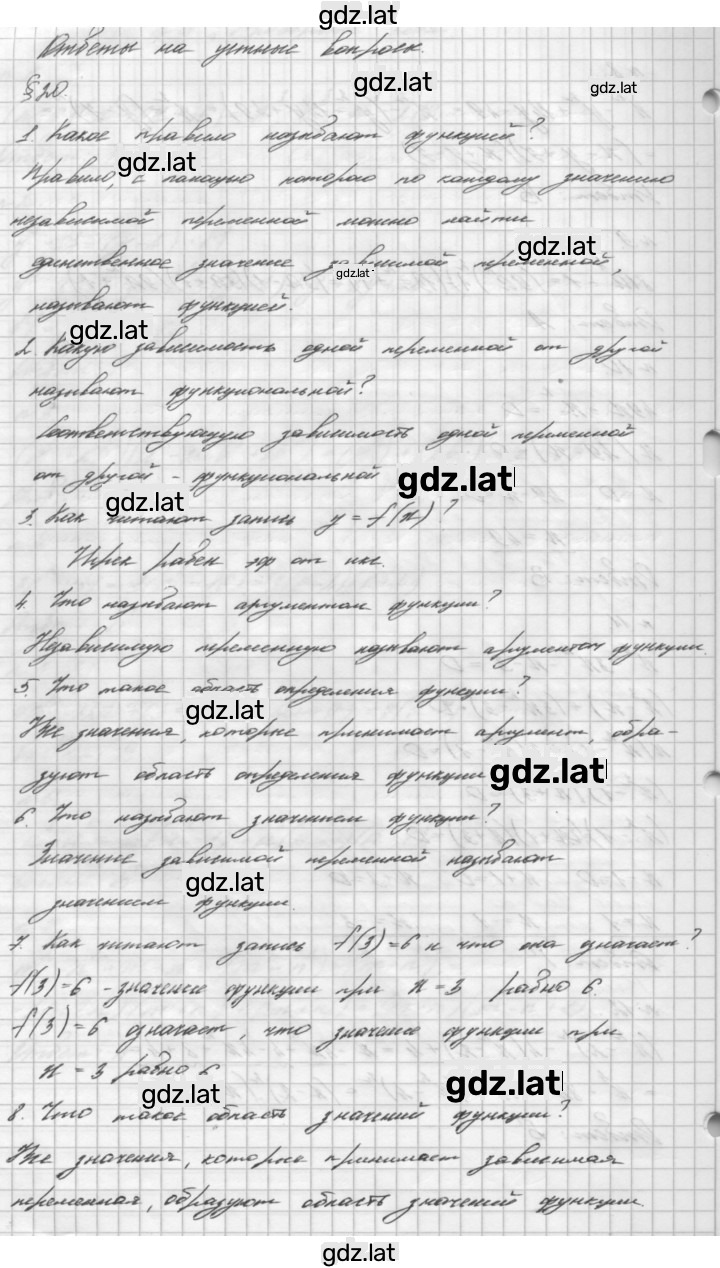 gdz.lat
Ответы на устные вопросы.
gdz.lat
gdz.lat
§20.
1. Какое правило называют функцией?
gdz.lat
Правило, с помощью которого по каждому значению
независимой переменной можно найти
gdz.lat
единственное значение зависимой переменной,
gdz.lat
называют функцией.
gdz.lat
2. Какую зависимость одной переменной от другой
называют функциональной?
Соответствующую зависимость одной переменной
от другой - функциональной
gdz.lat
gdz.lat
3. Как читают запись y = f(x)?
Игрек равен эф от икс.
4. Что называют аргументом функции?
Независимую переменную называют аргументом функции.
5. Что такое область определения функции?
gdz.lat
Все значения, которые принимает аргумент, обра-
зуют область определения функции
gdz.lat
6. Что называют значением функции?
Значение зависимой переменной называют
gdz.lat
значением функции.
7. Как читают запись f(3)=6 и что она означает?
f(3)=6 - значение функции при x = 3 равно 6.
f(3)=6 означает, что значение функции при
x = 3 равно 6
gdz.lat
gdz.lat
8. Что такое область значений функции?
Все значения, которые принимает зависимая
переменная, образуют область значений функции.
gdz.lat